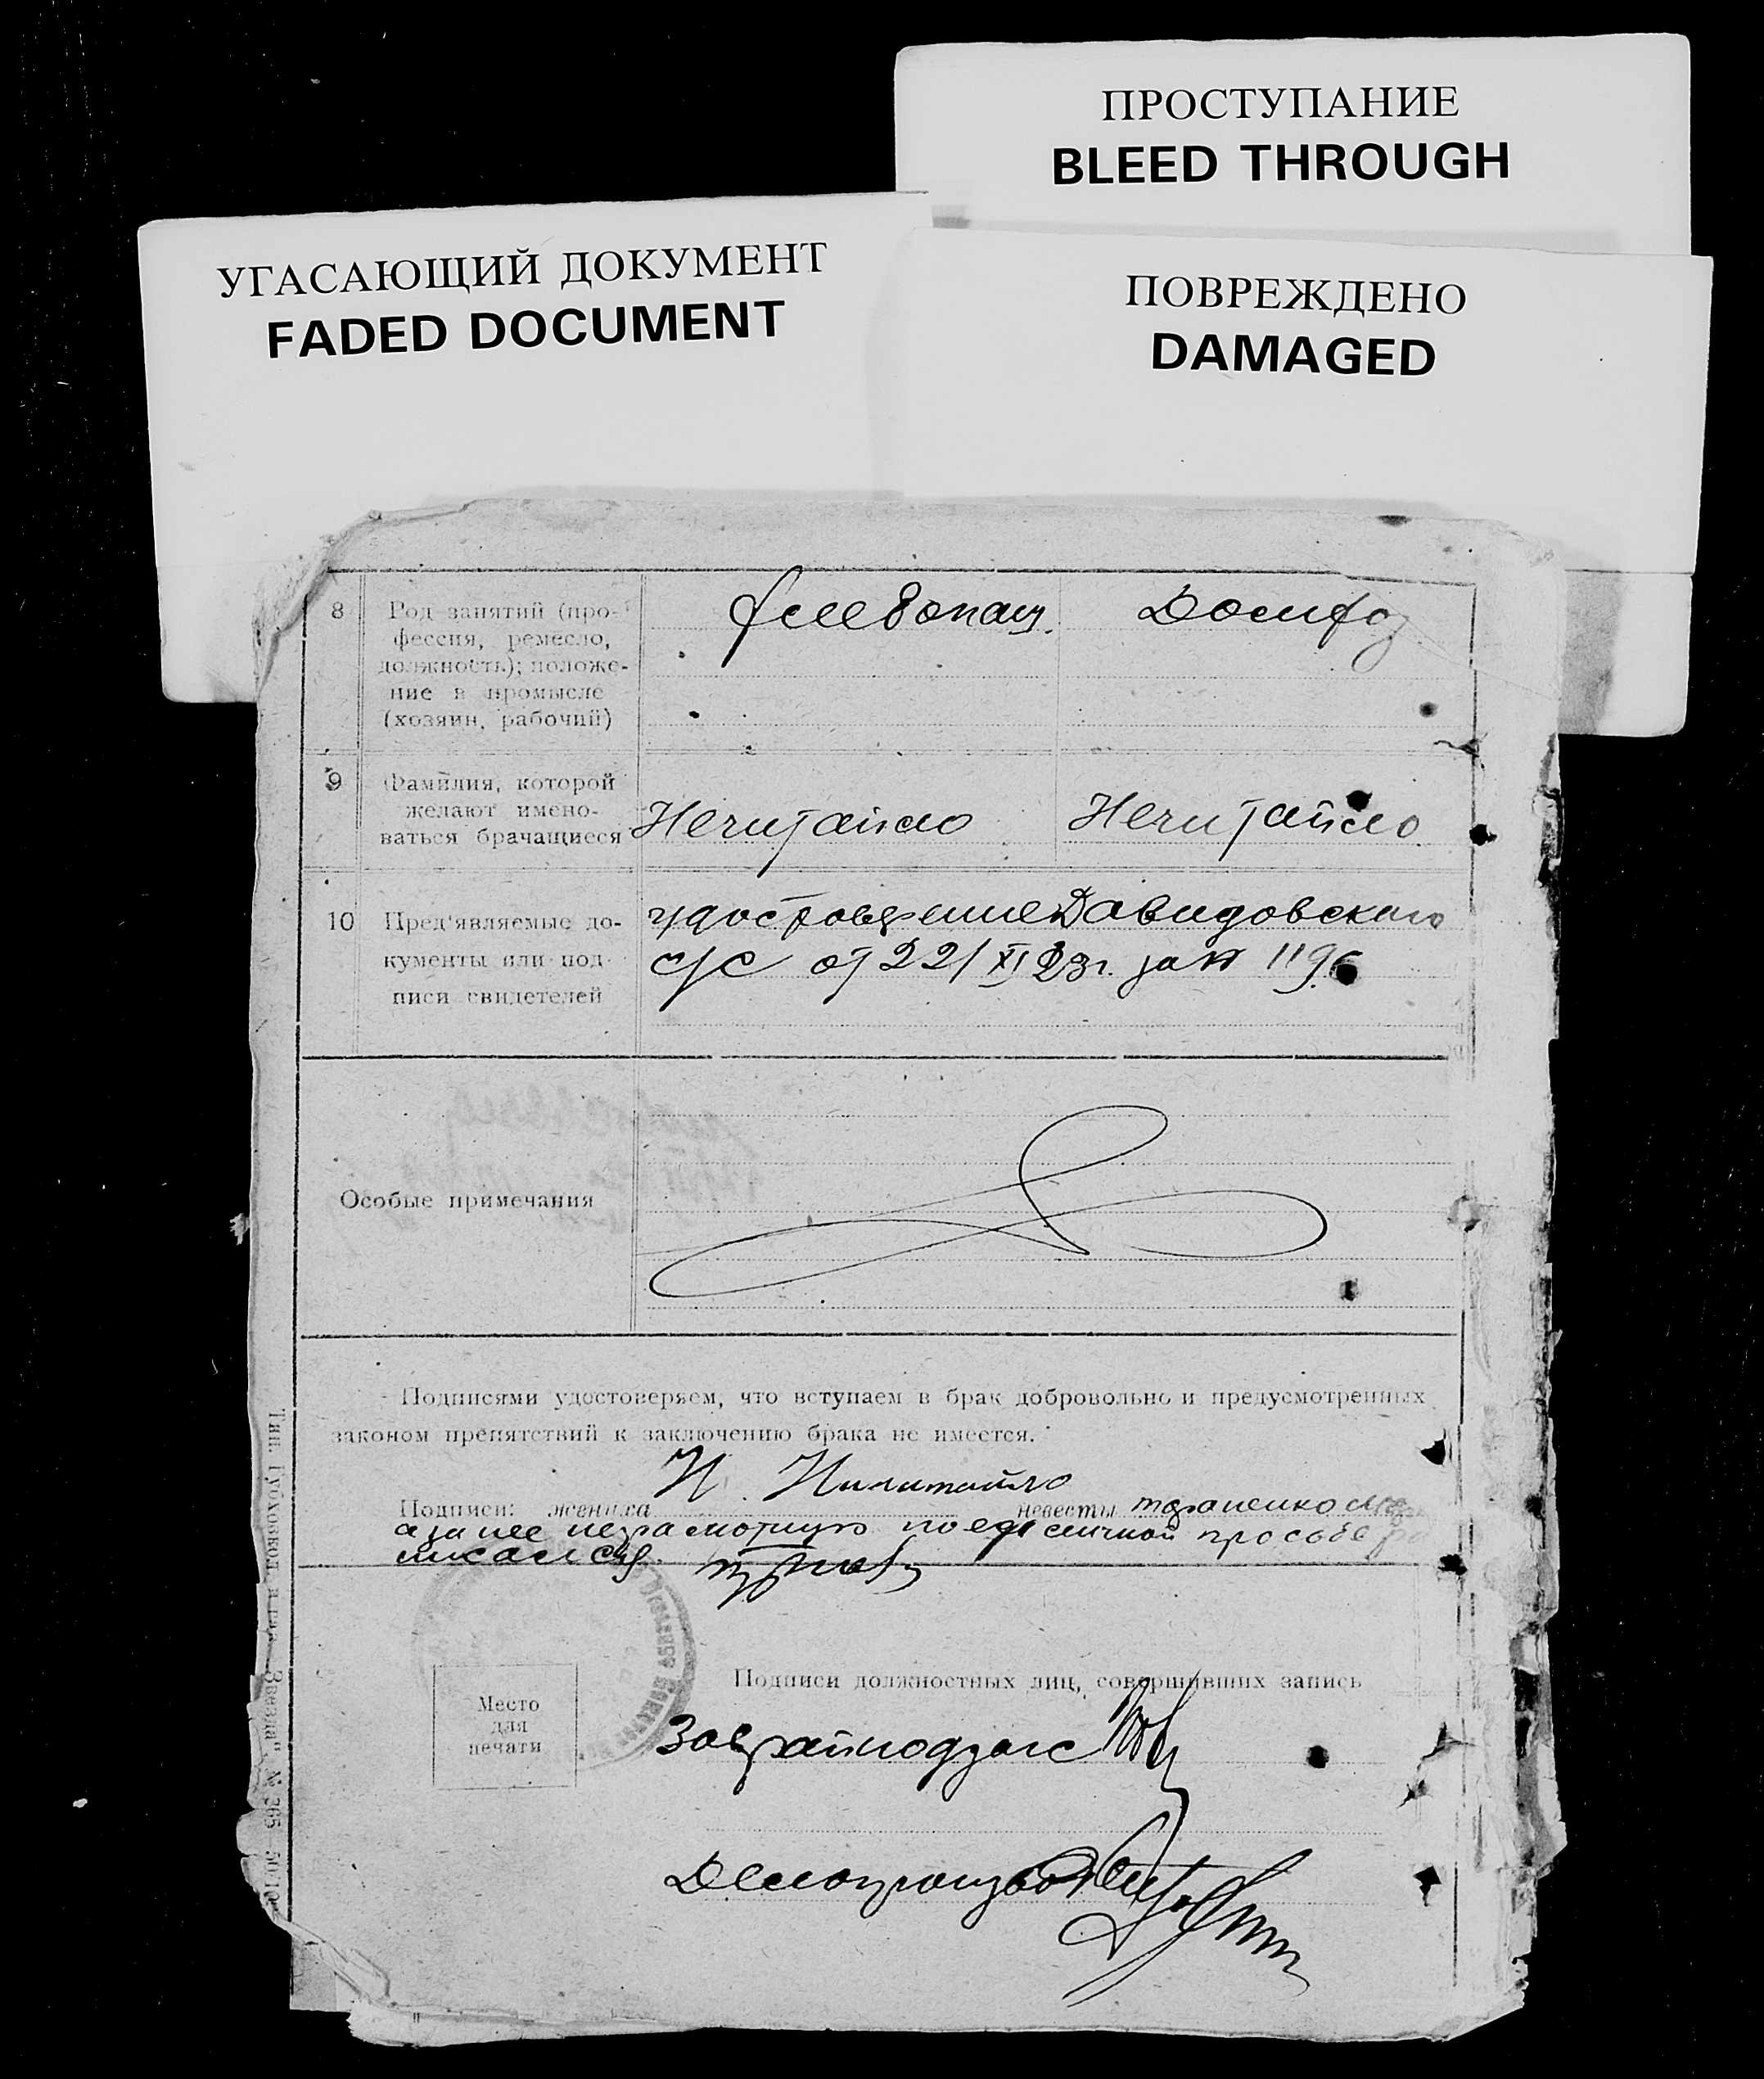 ПРОСТУПАНИЕ
BLEED THROUGH
УГАСАЮЩИЙ ДОКУМЕНТ
FADED DOCUMENT
ПОВРЕЖДЕНО
DAMAGED
8 Род занятий (про-
фессия, ремесло,
должность); положе-
ние в промысле
(хозяин, рабочий)
Хлебопаш. Домхоз
9 Фамилия, которой
желают имено-
ваться брачащиеся
Нечитайло Нечитайло
10 Пред'являемые до-
кументы или под-
писи свидетелей
удостоверение Давидовского
с/с от 22/XI 23г. за № 1196
Особые примечания
Подписями удостоверяем, что вступаем в брак добровольно и предусмотренных
законом препятствий к заключению брака не имеется.
Подписи: жениха Н Ничитайло невесты
а за нее неграмотную по ее личной просьбе
Место
для
печати
Подписи должностных лиц, совершивших запись
Заврайподзагс
Делопроизвод
Тип. Губисполкома "Звезда" № 265